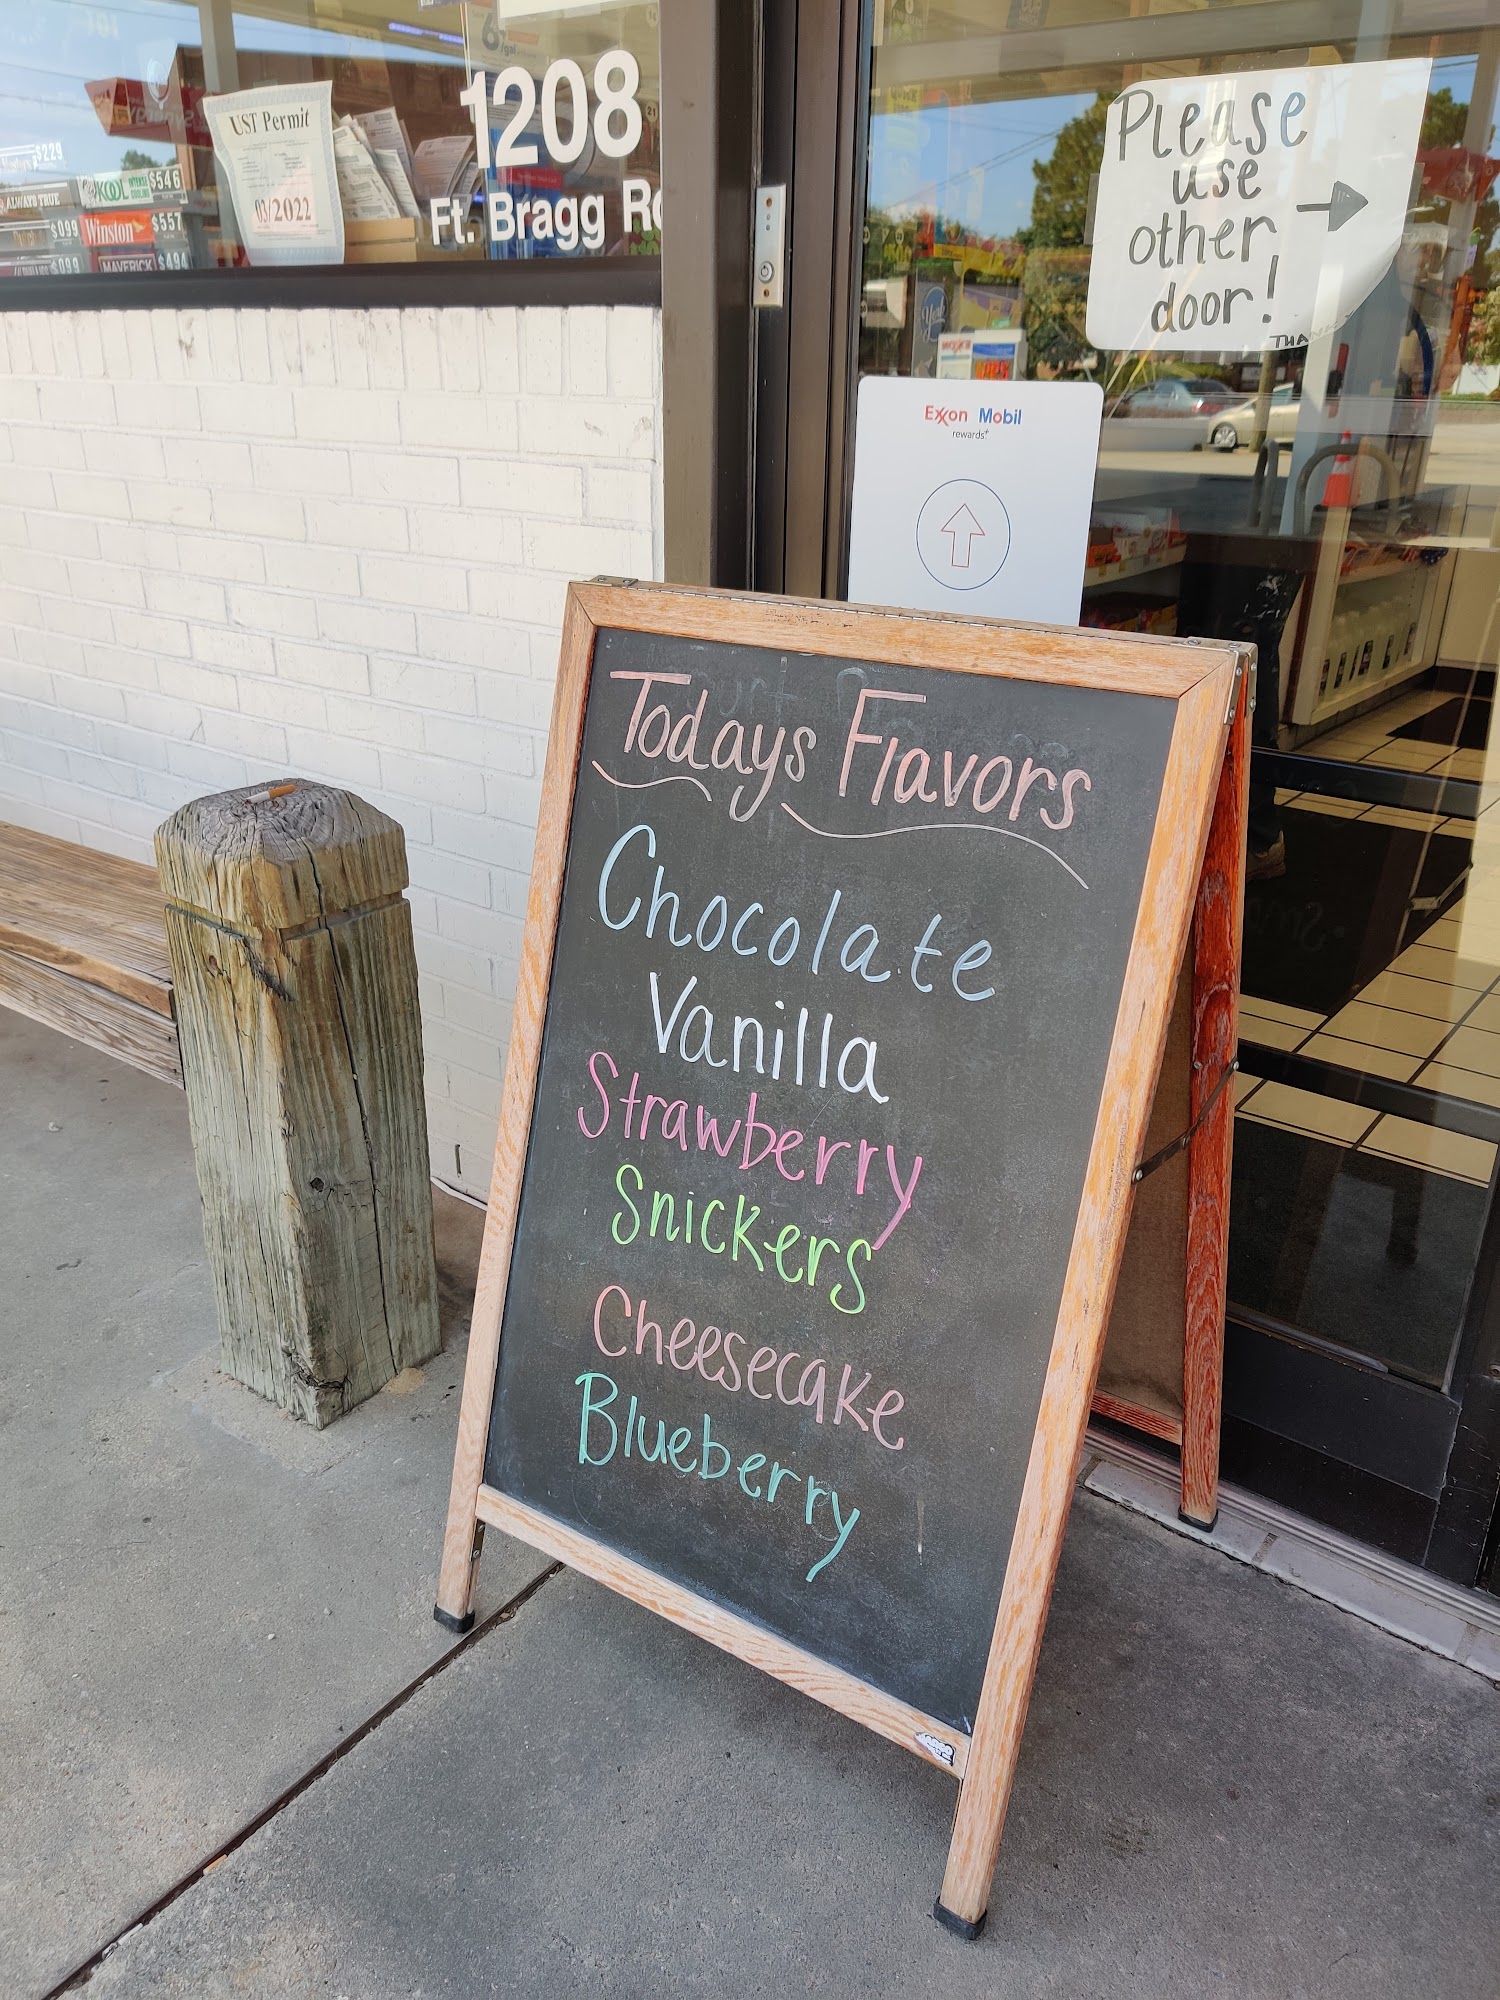 UST Permit
03/2022
1208
Ft. Bragg
$229
KOOL
$546
ALWAYS TRUE
$099
Winston
$557
$099
MAVERICK
$494
Please
use
other
door!
Exxon Mobil
rewards+
Todays Flavors
Chocolate
Vanilla
Strawberry
Snickers
Cheesecake
Blueberry